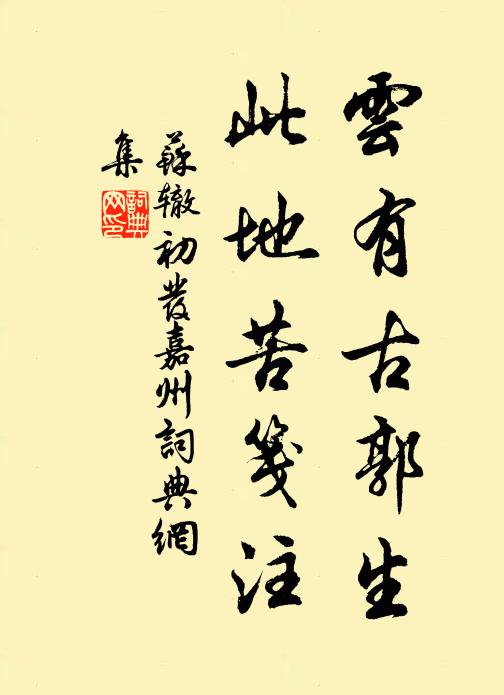 雲有古郭生
此地苦箋注
蘇辙初發嘉州詞典網
集
詞典
网印